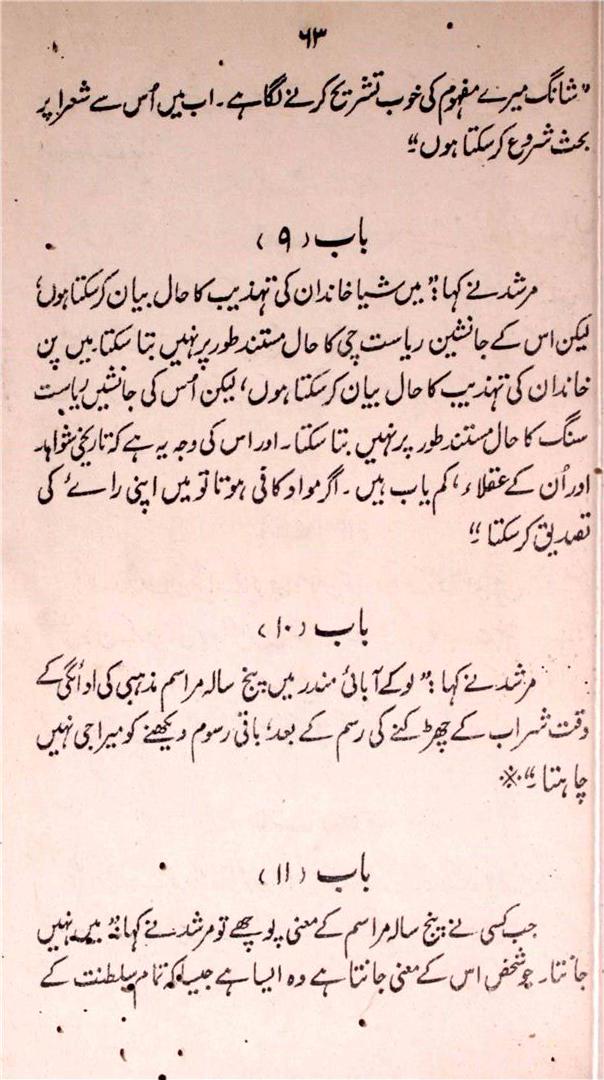 ۶۳
"شانگ میرے مفہوم کی خوب تشریح کرنے لگا ہے۔ اب میں اُس سے شعرا پر
بحث شروع کر سکتا ہوں"
باب (۹)
مرشد نے کہا: "میں شیا خاندان کی تہذیب کا حال بیان کر سکتا ہوں،
لیکن اس کے جانشین ریاست چی کا حال مستند طور پر نہیں بتا سکتا۔ میں پن
خاندان کی تہذیب کا حال بیان کر سکتا ہوں، لیکن اُس کی جانشیں ریاست
سنگ کا حال مستند طور پر نہیں بتا سکتا۔ اور اس کی وجہ یہ ہے کہ تاریخی شواہد
اور اُن کے عقلاء، کم یاب ہیں۔ اگر مواد کافی ہوتا تو میں اپنی رائے کی
تصدیق کر سکتا۔"
باب (۱۰)
مرشد نے کہا: "لو کے آبائی مندر میں پنج سالہ مراسم مذہبی کی ادائگی کے
وقت شراب کے چھڑکنے کی رسم کے بعد، باقی رسوم دیکھنے کو میرا جی نہیں
چاہتا۔"※
باب (۱۱)
جب کسی نے پنج سالہ مراسم کے معنی پوچھے تو مرشد نے کہا: "میں نہیں
جانتا۔ جو شخص اس کے معنی جانتا ہے وہ ایسا ہے جیسا کہ تمام سلطنت کے